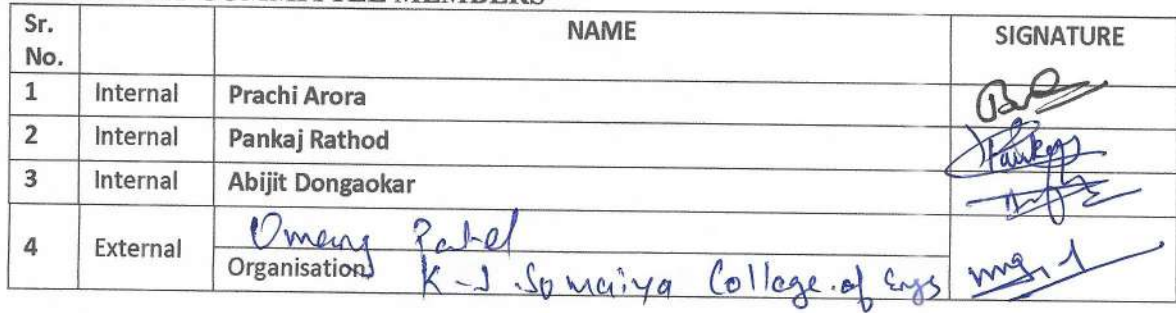 COMMITTEE MEMBERS
Sr. No. NAME SIGNATURE
1 Internal Prachi Arora
2 Internal Pankaj Rathod Pankaj
3 Internal Abijit Dongaokar
4 External Omang Patel
Organisation K-J.Somaiya College.of Engs